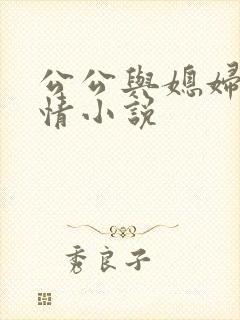 公公與媳婦
情小說
秀良子